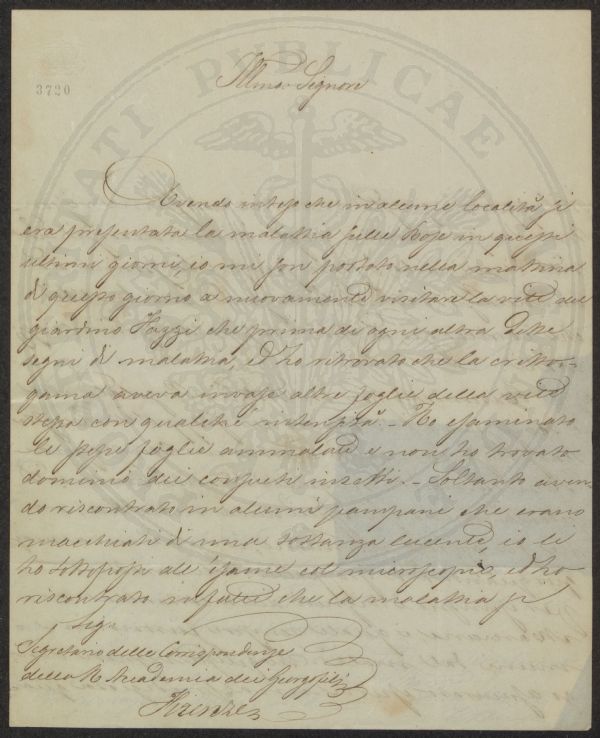 3720
TATI PUBLICAE
Illmo. Signore
Avendo inteso che in alcune località si
era presentata la malattia sulle Rose in questi
ultimi giorni, io mi son portato nella mattina
di questo giorno a nuovamente visitare la vite del
giardino che prima di ogni altra dette
segni di malattia, ed ho ritrovato che la critto-
gama aveva invase altre foglie della vite
stessa con qualche intensità. Ho esaminato
le stesse foglie ammalate e non ho trovato
dominio dei consueti insetti. - Soltanto aven-
do riscontrato in alcuni pampani che erano
macchiati di una sostanza lucente, io li
ho sottoposti all' esame col microscopio, ed ho
riscontrato infatti che la malattia si
Sigr
Segretario delle Corrispondenze
della R. Accademia dei Georgofili
Firenze